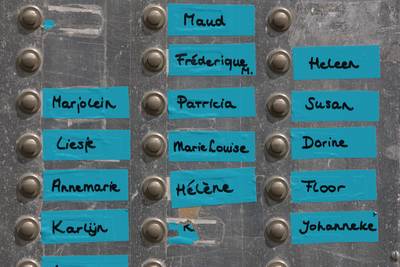 Maud
Fréderique M.
Heleen
Marjolein
Patricia
Susan
Liesje
Marie Louise
Dorine
Annemarie
Hélène
Floor
Karlijn
K
Johanneke